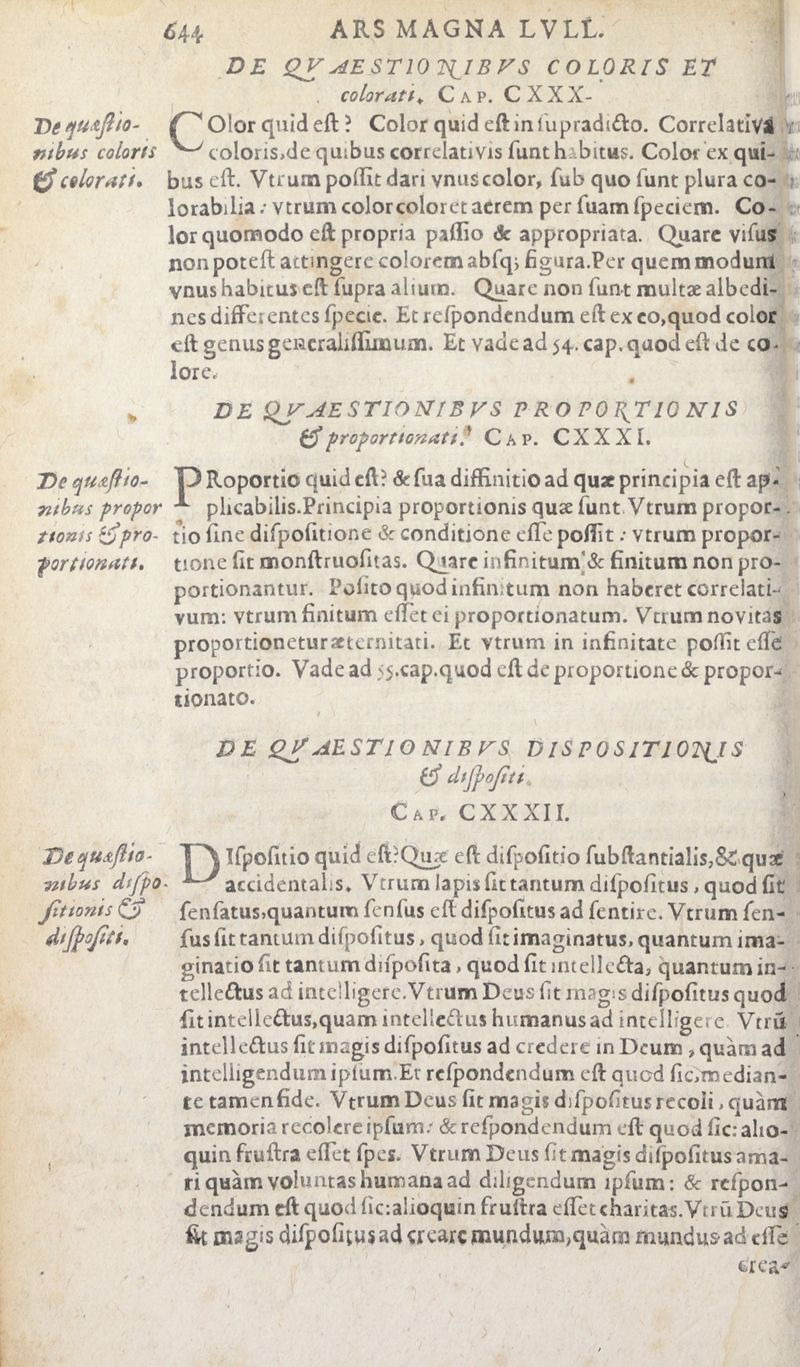 644 ARS MAGNA LVLL.
DE QVAESTIONIBVS COLORIS ET
colorati. CAP. CXXX-
De quæstio-
nibus coloris
& colorati.
COlor quid est? Color quid est in supradicto. Correlativa
coloris, de quibus correlativis sunt habitus. Color ex qui-
bus est. Vtrum possit dari vnus color, sub quo sunt plura co-
lorabilia: vtrum color coloret aerem per suam speciem. Co-
lor quomodo est propria passio & appropriata. Quare visus
non potest attingere colorem absq; figura. Per quem modum
vnus habitus est supra alium. Quare non sunt multæ albedi-
nes differentes specie. Et respondendum est ex eo, quod color
est genus generalissimum. Et vade ad 54. cap. quod est de co-
lore.
DE QVAESTIONIBVS PROPORTIONIS
& proportionati. CAP. CXXXI.
De quæstio-
nibus propor
tionis & pro-
portionati.
PRoportio quid est? & sua diffinitio ad quæ principia est ap-
plicabilis. Principia proportionis quæ sunt. Vtrum propor-
tio sine dispositione & conditione esse possit: vtrum propor-
tione sit monstruositas. Quare infinitum & finitum non pro-
portionantur. Posito quod infinitum non haberet correlati-
vum: vtrum finitum esset ei proportionatum. Vtrum novitas
proportionetur æternitati. Et vtrum in infinitate possit esse
proportio. Vade ad 55. cap. quod est de proportione & propor-
tionato.
DE QVAESTIONIBVS DISPOSITIONIS
& dispositi.
CAP. CXXXII.
De quæstio-
nibus dispo-
sitionis &
dispositi.
DIspositio quid est? Quæ est dispositio substantialis, & quæ
accidentalis. Vtrum lapis sit tantum dispositus, quod sit
sensatus, quantum sensus est dispositus ad sentire. Vtrum sen-
sus sit tantum dispositus, quod sit imaginatus, quantum ima-
ginatio sit tantum disposita, quod sit intellecta, quantum in-
tellectus ad intelligere. Vtrum Deus sit magis dispositus quod
sit intellectus, quam intellectus humanus ad intelligere. Vtrū
intellectus sit magis dispositus ad credere in Deum, quàm ad
intelligendum ipsum. Et respondendum est quod sic, median-
te tamen fide. Vtrum Deus sit magis dispositus recoli, quàm
memoria recolere ipsum: & respondendum est quod sic: alio-
quin frustra esset spes. Vtrum Deus sit magis dispositus ama-
ri quàm voluntas humana ad diligendum ipsum: & respon-
dendum est quod sic: alioquin frustra esset charitas. Vtrū Deus
sit magis dispositus ad creare mundum, quàm mundus ad esse
crea-